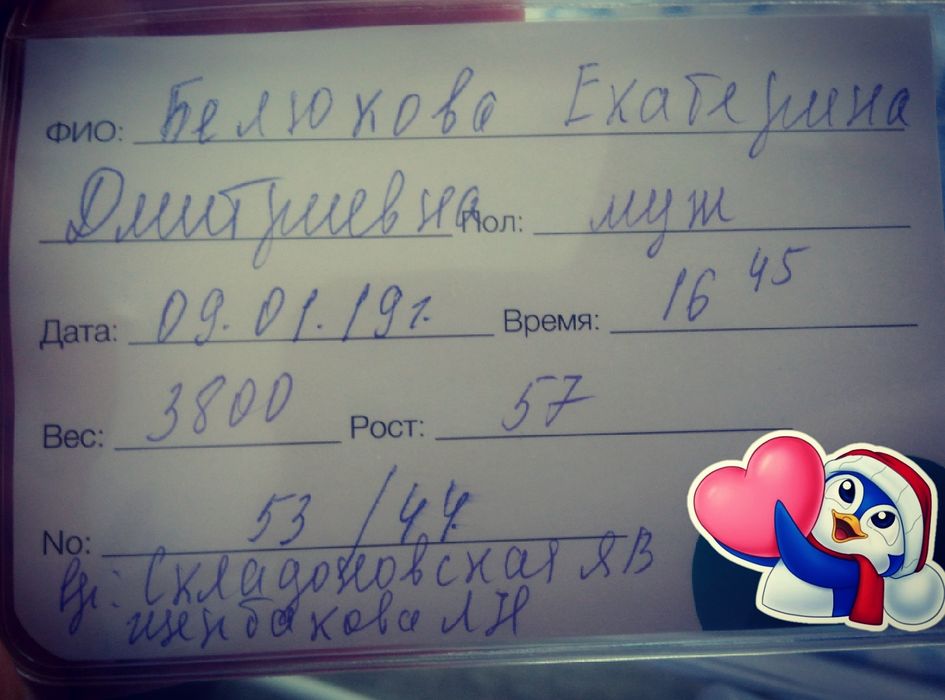 ФИО: Белюкова Екатерина
Дмитриевна Пол: муж
Дата: 09.01.19г. Время: 16 45
Вес: 3800 Рост: 57
No: 53 / 44
Складоновская ЯВ
Щербакова ЛН